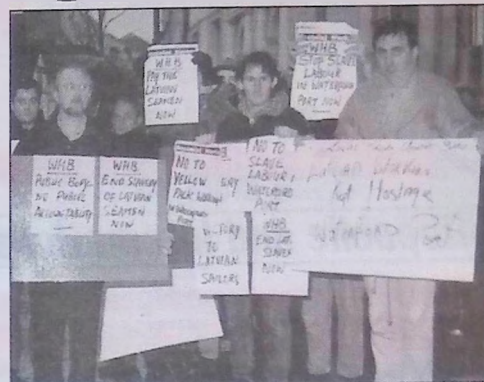 WHB
PAY THE
LATVIAN
SEAMEN
NOW
WHB
STOP SLAVE
LABOUR
IN WATERFORD
PORT NOW
WHB
PUBLIC BODY
NO PUBLIC
ACCOUNTABILITY
WHB
END SLAVERY
OF LATVIAN
SEAMEN
NOW
NO TO
YELLOW
PACK
PORT
VICTORY
TO
LATVIAN
SAILORS
NO TO
SLAVE
LABOUR,
WATERFORD
PORT
WHB
END
SLAVERY
NOW
Hostage
WATERFORD Port